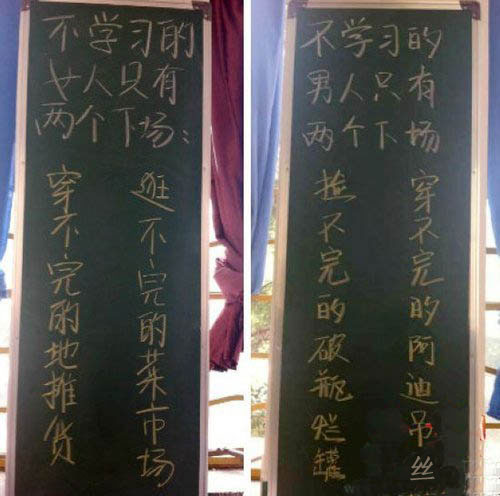 不学习的
女人只有
两个下场：
逛不完的菜市场
穿不完的地摊货
不学习的
男人只有
两个下场
穿不完的阿迪吊丝
捡不完的破瓶烂罐